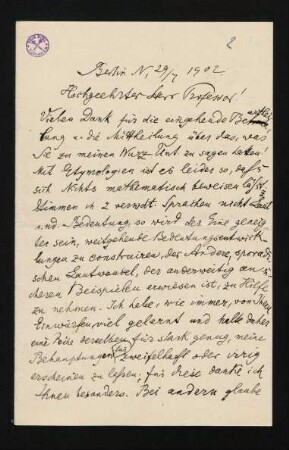 2
Berlin N, 29/7 1902
Hochgeehrter Herr Professor!
Vielen Dank für die eingehende
u. die Mittheilung über das, was
Sie zu meinen Wurz Unt. zu sagen haben!
Mit Etymologien ist es leider so, daß
sich Nichts mathematisch beweisen läßt.
Stimmen in 2 verwdt. Sprachen nicht Laut
und Bedeutung, so wird der Eine geneigter
sein, weitgehende Bedeutungsentwicklungen
zu construiren, der Andere, sporadischen
Lautwandel, der anderweitig an sicheren
Beispielen erwiesen ist, zu Hilfe
zu nehmen. Ich habe, wie immer, von Ihren
Einwürfen viel gelernt und halte daher
eine derselben für stark genug, meine
Behauptungen für zweifelhaft oder irrig
erscheinen zu lassen; für diese danke ich
Ihnen besonders. Bei andern glaube